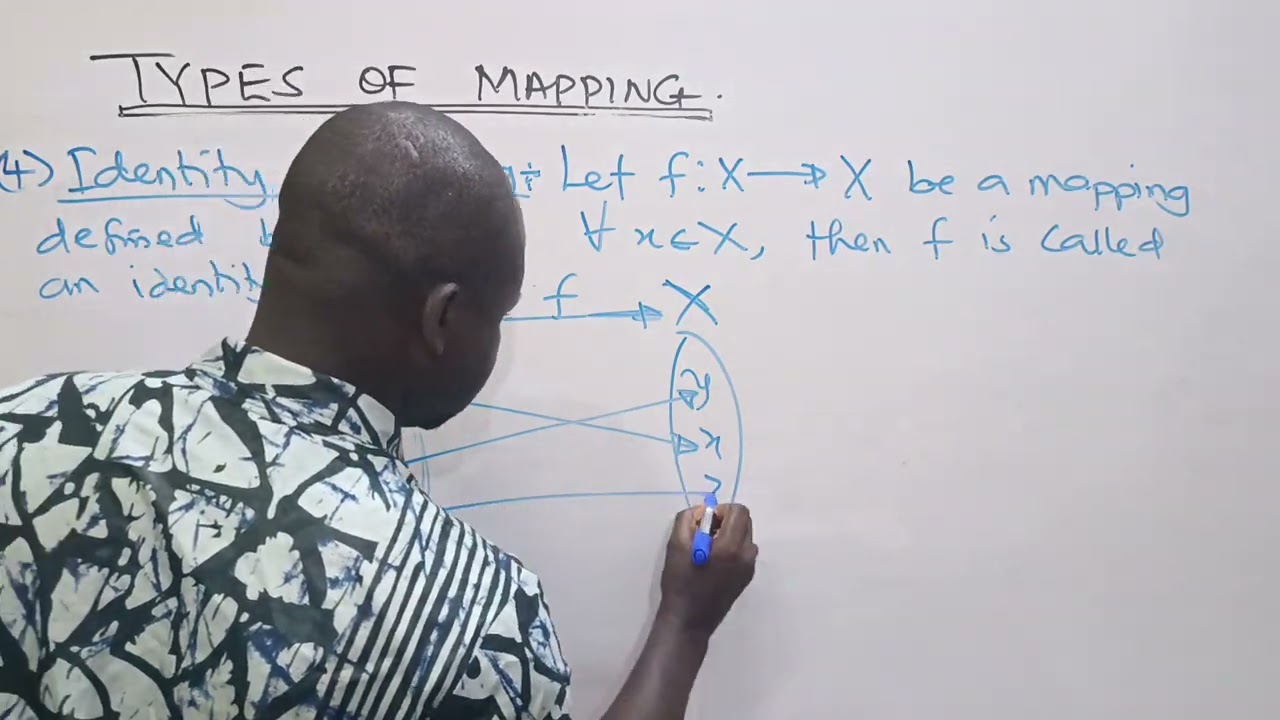 TYPES OF MAPPING.
(4) Identity :- Let f: X → X be a mapping
defined ∀ x ∈ X, then f is called
an identity
f X
y
x